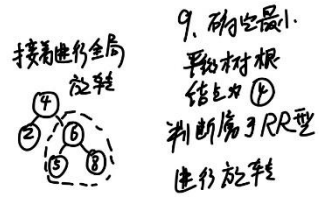 接着进行全局
旋转
4
2
6
5
8
9、确定最小
平衡树根
结点为④
判断属于RR型
进行旋转